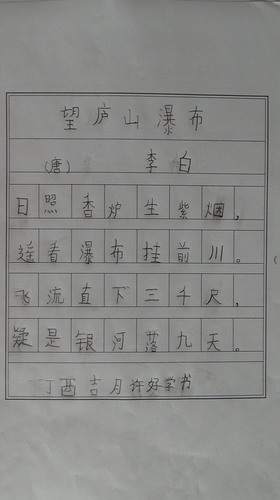 望庐山瀑布
(唐) 李白
日照香炉生紫烟，
遥看瀑布挂前川。
飞流直下三千尺，
疑是银河落九天。
丁酉吉月许好学书